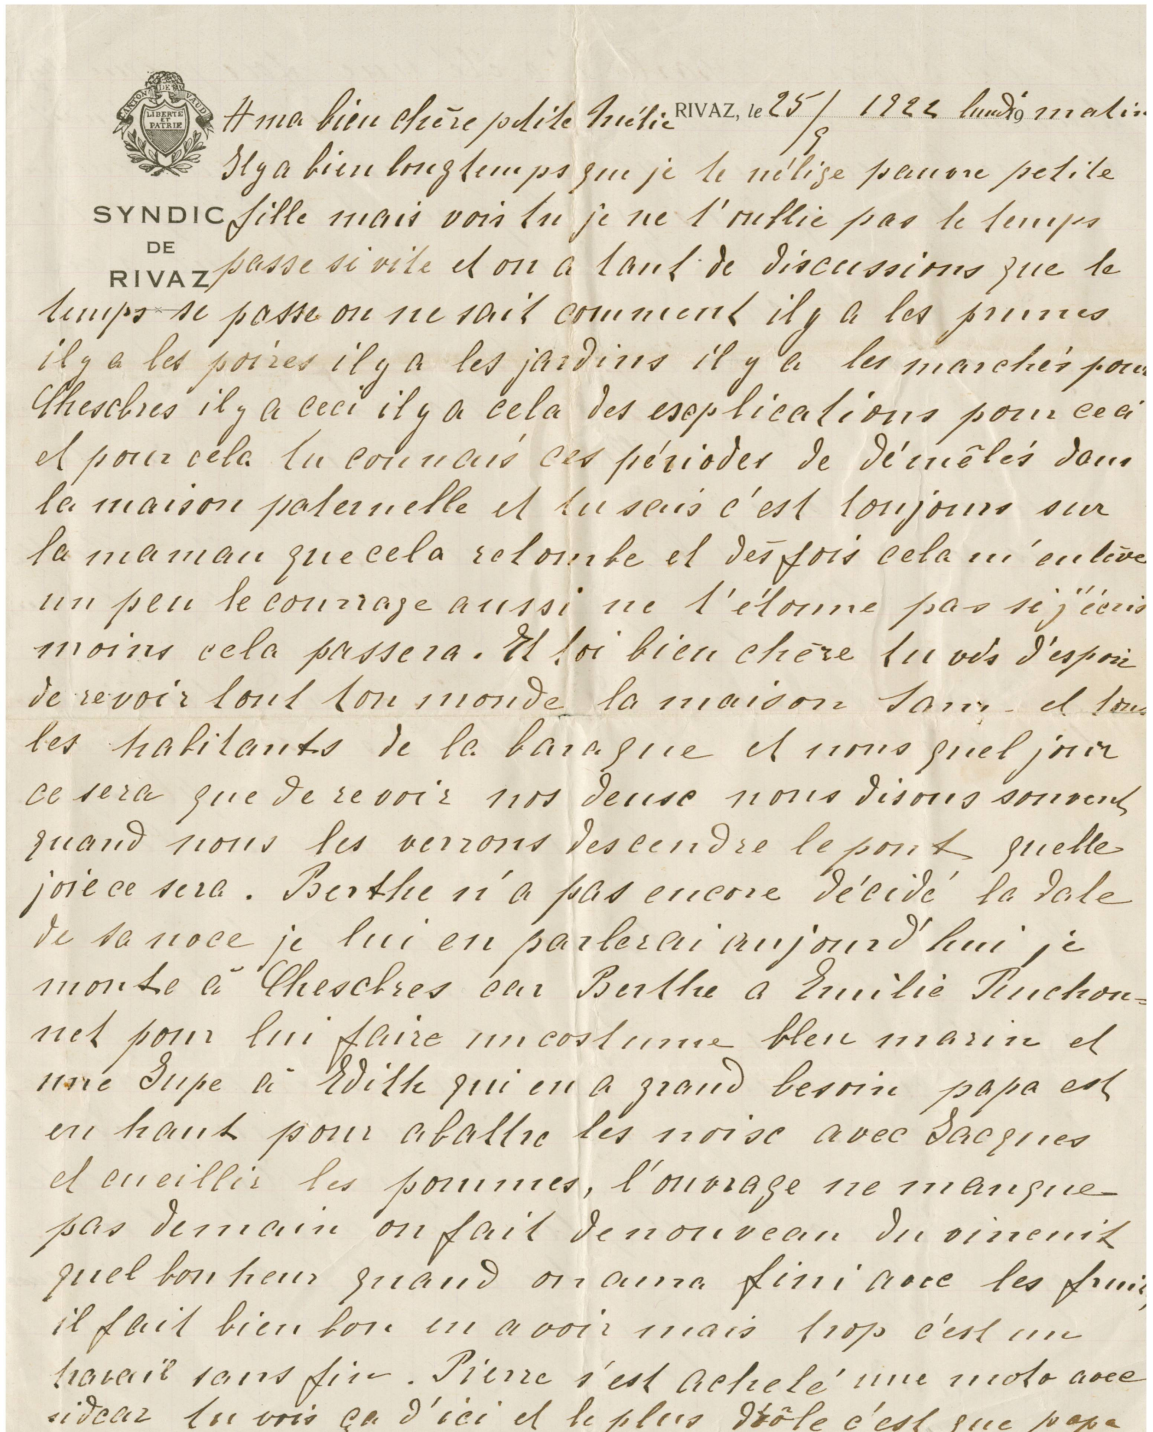 CANTON DE VAUD
LIBERTÉ ET PATRIE
SYNDIC
DE
RIVAZ
A ma bien chère petite Mélie RIVAZ, le 25/9 1922 lundi 19 matin
Il y a bien longtemps que je te nélige pauvre petite
fille mais vois tu je ne t'oublie pas le temps
passe si vite et on a tant de discussions que le
temps se passe on ne sait comment il y a les prunes
il y a les poires il y a les jardins il y a les marchés pour
Chesebres il y a ceci il y a cela des explications pour ceci
et pour cela tu connais ces périodes de démêlés dans
la maison paternelle et tu sais c'est toujours sur
la maman que cela retombe et des fois cela m'enlève
un peu le courrage aussi ne t'étonne pas si j'écris
moins cela passera. Et toi bien chère tu vis d'espoir
de revoir tout ton monde la maison Sam et tous
les habitants de la baraque et nous quel jour
ce sera que de revoir nos deux nous disons souvent
quand nous les verrons descendre le pont quelle
joie ce sera. Berthe n'a pas encore décidé la date
de sa noce je lui en parlerai aujourd'hui je
monte à Chesebres car Berthe a Emilie Puchon=
net pour lui faire un costume bleu marin et
une Jupe à Edith qui en a grand besoin papa est
en haut pour abattre les noix avec Jacques
et cueillir les pommes, l'ouvrage ne manque
pas demain on fait de nouveau du vin cuit
quel bonheur quand on aura fini avec les fruits,
il fait bien bon en avoir mais trop c'est un
travail sans fin. Pierre s'est acheté une moto avec
sidcar tu vois ça d'ici et le plus drôle c'est que papa